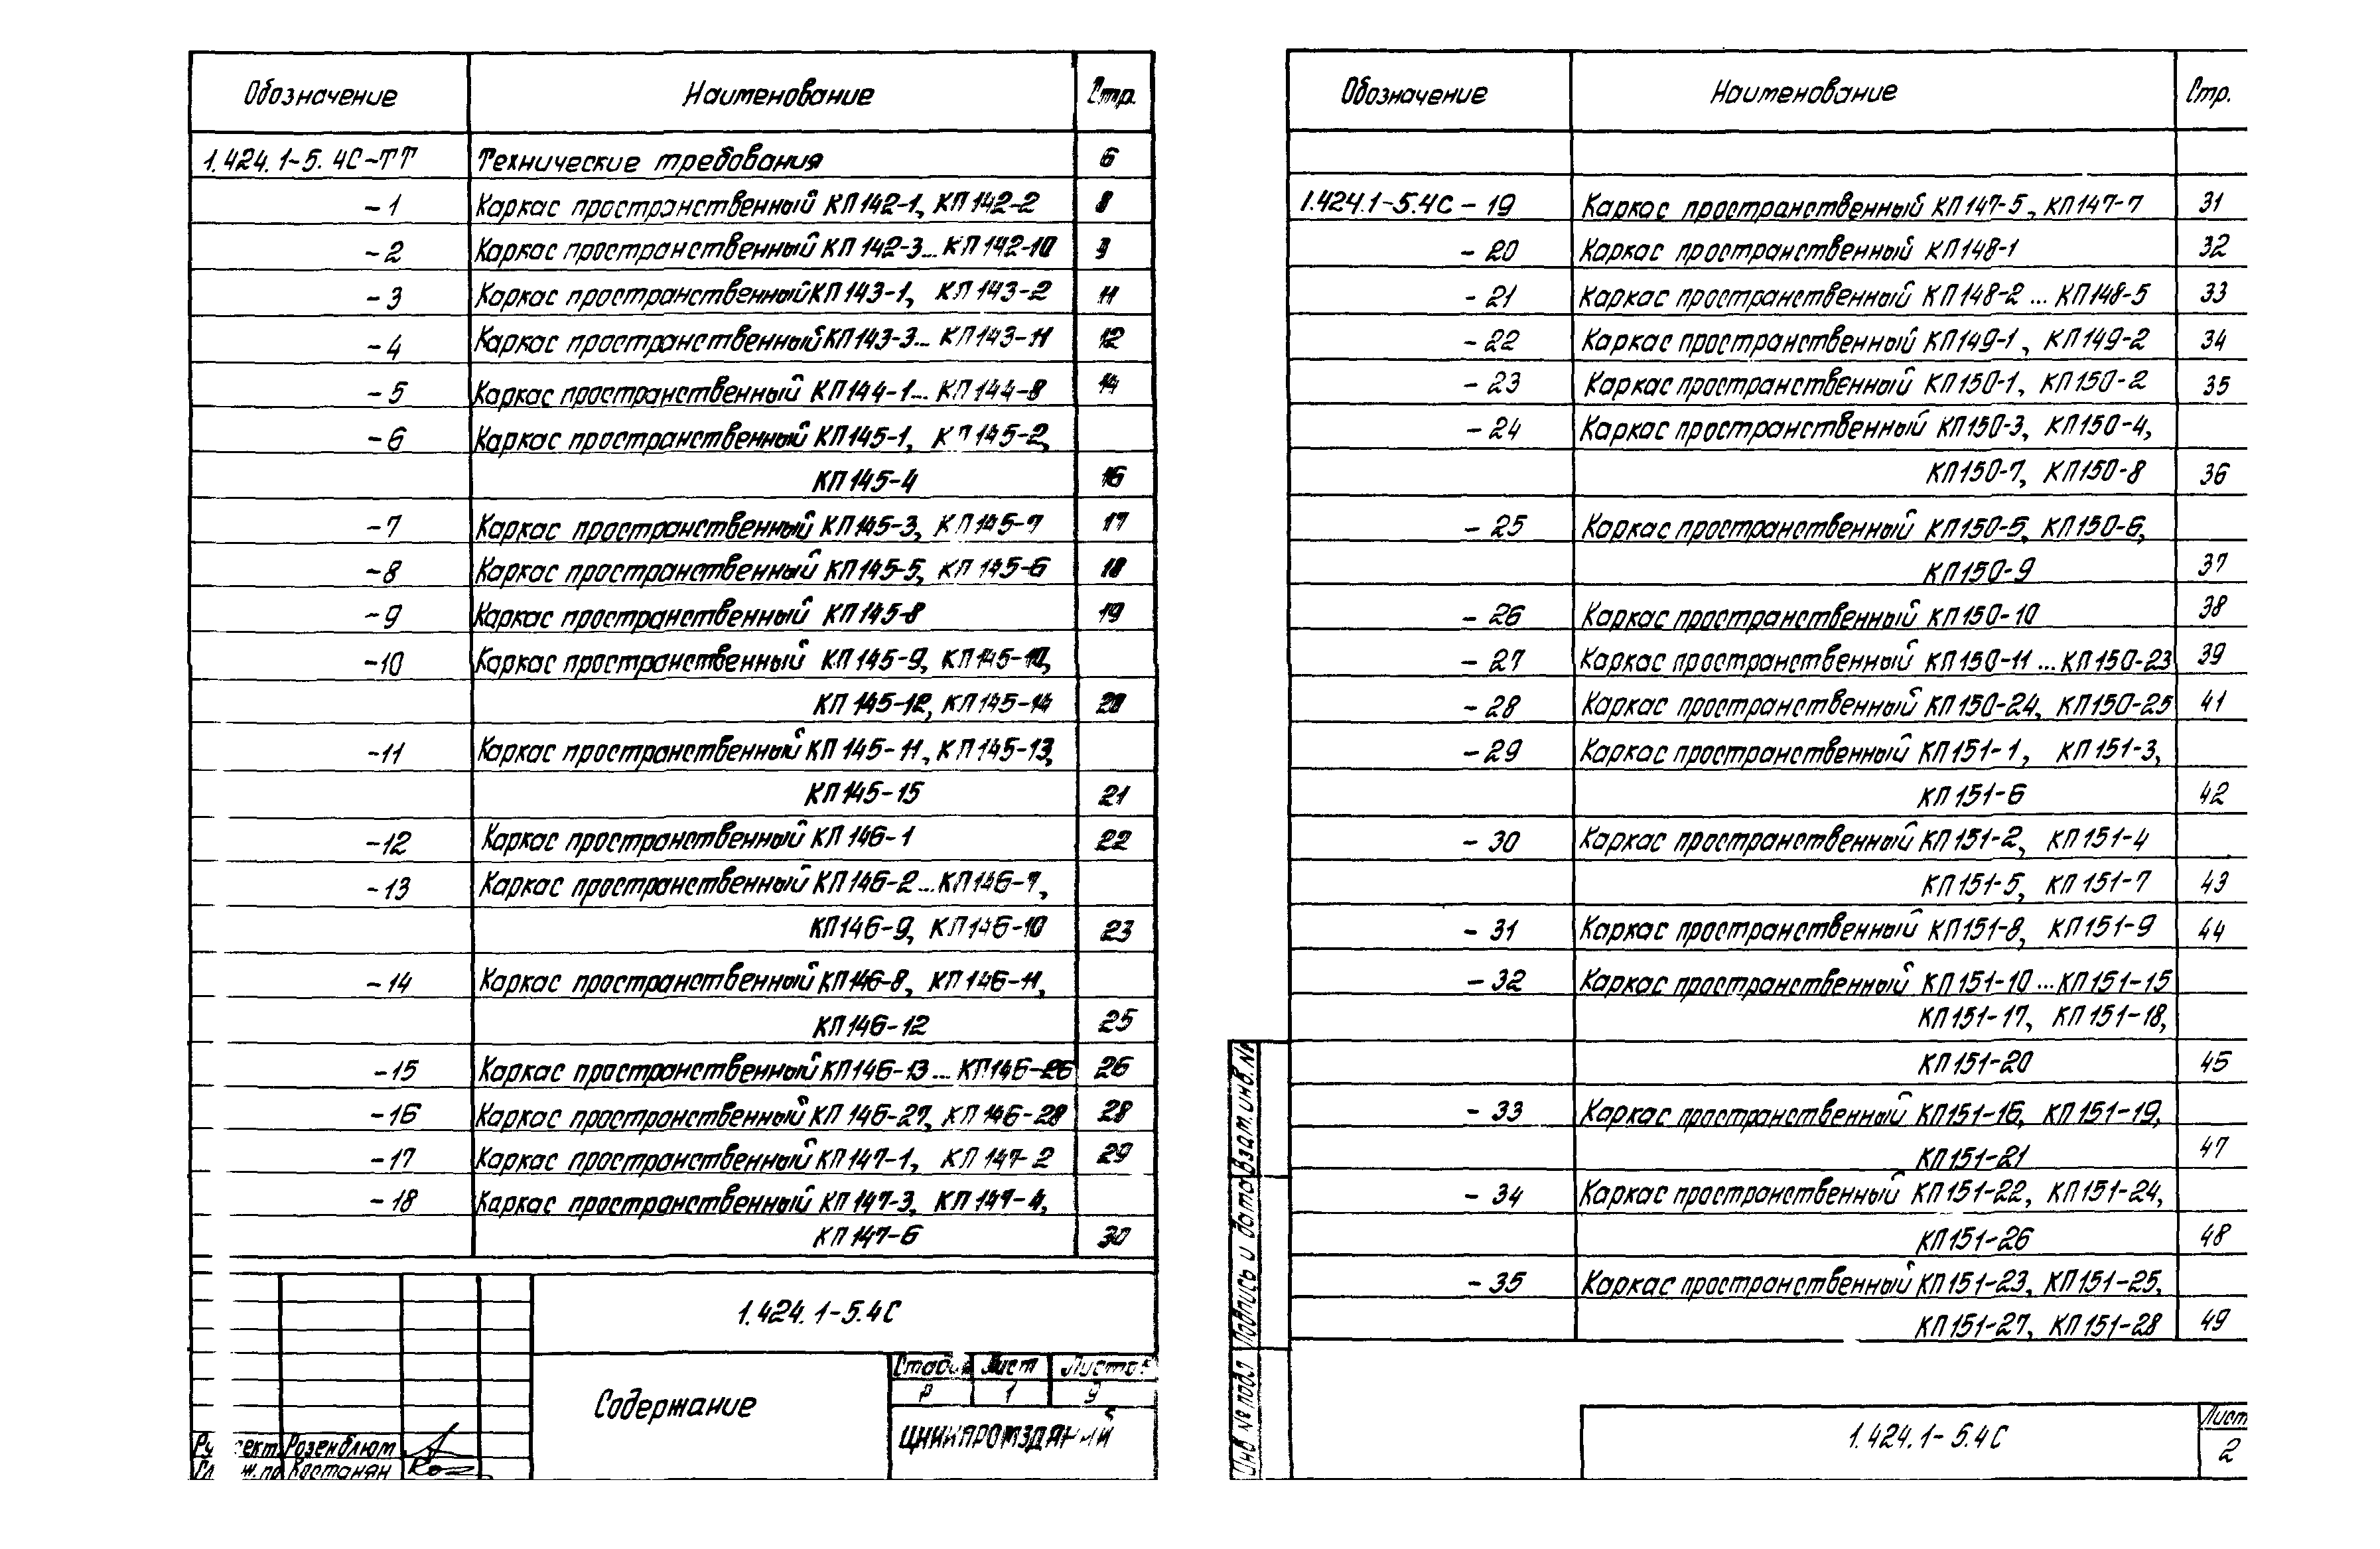 Обозначение Наименование Стр.
1.424.1-5.4С-ТТ Технические требования 6
-1 Каркас пространственный КП142-1, КП142-2 8
-2 Каркас пространственный КП142-3...КП142-10 9
-3 Каркас пространственный КП143-1, КП143-2 11
-4 Каркас пространственный КП143-3...КП143-11 12
-5 Каркас пространственный КП144-1...КП144-8 14
-6 Каркас пространственный КП145-1, КП145-2,
КП145-4 16
-7 Каркас пространственный КП145-3, КП145-7 17
-8 Каркас пространственный КП145-5, КП145-6 18
-9 Каркас пространственный КП145-8 19
-10 Каркас пространственный КП145-9, КП145-10,
КП145-12, КП145-14 20
-11 Каркас пространственный КП145-11, КП145-13,
КП145-15 21
-12 Каркас пространственный КП146-1 22
-13 Каркас пространственный КП146-2...КП146-7,
КП146-9, КП146-10 23
-14 Каркас пространственный КП146-8, КП146-11,
КП146-12 25
-15 Каркас пространственный КП146-13...КП146-26 26
-16 Каркас пространственный КП146-27, КП146-28 28
-17 Каркас пространственный КП147-1, КП147-2 29
-18 Каркас пространственный КП147-3, КП147-4,
КП147-6 30
1.424.1-5.4С
Содержание
Стадия Лист Листов
Р 1 9
ЦНИИПРОМЗДАНИЙ
Розенблют
Костанян
Обозначение Наименование Стр.
1.424.1-5.4С-19 Каркас пространственный КП147-5, КП147-7 31
-20 Каркас пространственный КП148-1 32
-21 Каркас пространственный КП148-2...КП148-5 33
-22 Каркас пространственный КП149-1, КП149-2 34
-23 Каркас пространственный КП150-1, КП150-2 35
-24 Каркас пространственный КП150-3, КП150-4,
КП150-7, КП150-8 36
-25 Каркас пространственный КП150-5, КП150-6,
КП150-9 37
-26 Каркас пространственный КП150-10 38
-27 Каркас пространственный КП150-11...КП150-23 39
-28 Каркас пространственный КП150-24, КП150-25 41
-29 Каркас пространственный КП151-1, КП151-3,
КП151-6 42
-30 Каркас пространственный КП151-2, КП151-4
КП151-5, КП151-7 43
-31 Каркас пространственный КП151-8, КП151-9 44
-32 Каркас пространственный КП151-10...КП151-15
КП151-17, КП151-18,
КП151-20 45
-33 Каркас пространственный КП151-16, КП151-19,
КП151-21 47
-34 Каркас пространственный КП151-22, КП151-24,
КП151-26 48
-35 Каркас пространственный КП151-23, КП151-25,
КП151-27, КП151-28 49
Инв № подл Подпись и дата Взам.инв.№
1.424.1-5.4С
Лист
2